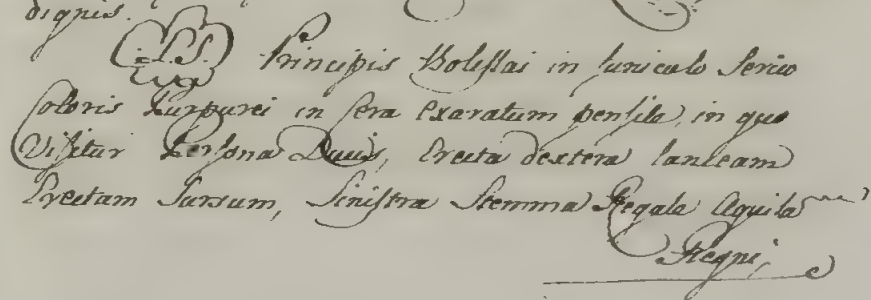 dignis.
(L.S.) Principis Boleslai in funiculo Serico
Coloris Purpurei in Cera Exaratum pensile, in quo
Visitur Persona Ducis, Erecta dextera lanceam
Erectam Sursum, Sinistra Stemma Regale Aquila
Regni,